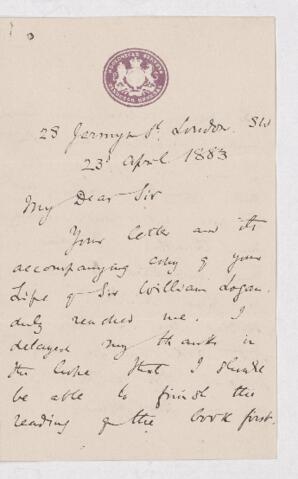 3
28 Jermyn St. London. SW
23 April 1883
My Dear Sir
Your letter and its
accompanying copy of your
Life of Sir William Logan
duly reached me. I
delayed my thanks in
the hope that I should
be able to finish the
reading of the book first.